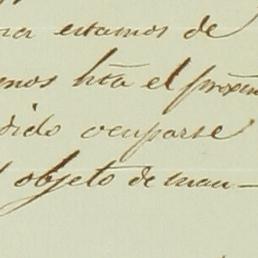 ra estamos de
enos hta el próxim
dido ocuparse
l objeto de man-